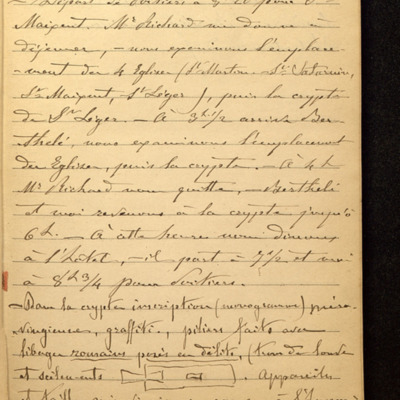 — Départ de Poitiers à 9 20 pour St
Maixent. Mr Richard me donne à
déjeuner, — nous examinons l'emplace-
-ment des 4 Eglises (St Martin, St Saturnin,
St Maixent, St Léger), puis la crypte
de St Léger. — À 3h 1/2 arrive Ber-
thelé, nous examinons l'emplacement
des Eglises, puis la crypte. — À 4h
Mr Richard nous quitte, — Berthelé
et moi revenons à la crypte jusqu'à
6h. — À cette heure nous dînons
à l'hôtel, — il part à 7 1/2 et moi
à 8h 3/4 pour Poitiers.
— Dans la crypte inscription (monogramme) méro-
vingienne, graffiti, piliers faits avec
libages romains posés en délits, (trous de louve
et scellements). Appareils
et